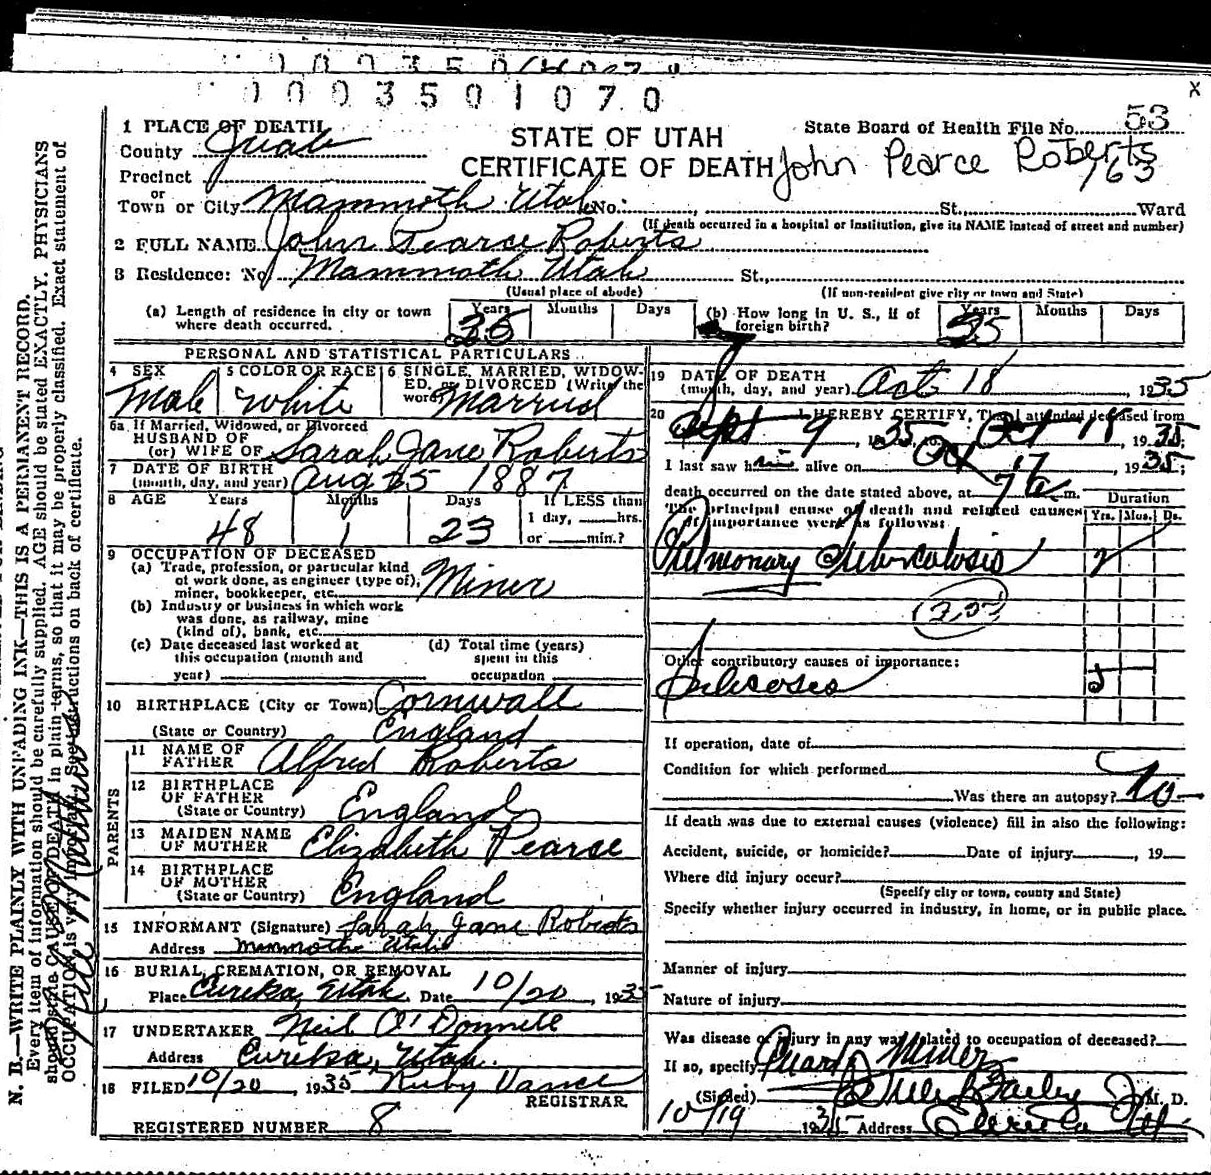 1003501070
1 PLACE OF DEATH
County Juab
STATE OF UTAH
CERTIFICATE OF DEATH
State Board of Health File No. 53
John Pearce Roberts
163
Precinct
or
Town or City Mammoth Utah No. St., Ward
(If death occurred in a hospital or institution, give its NAME instead of street and number)
2 FULL NAME John Pearce Roberts
3 Residence: No. Mammoth Utah St.,
(Usual place of abode) (If non-resident give city or town and State)
(a) Length of residence in city or town where death occurred. Years 35 Months Days
(b) How long in U. S., if of foreign birth? Years 35 Months Days
PERSONAL AND STATISTICAL PARTICULARS
4 SEX Male
5 COLOR OR RACE White
6 SINGLE, MARRIED, WIDOWED, or DIVORCED (Write the word) Married
6a If Married, Widowed, or Divorced
HUSBAND OF
(or) WIFE OF Sarah Jane Roberts
7 DATE OF BIRTH
(month, day, and year) Aug 25 1887
8 AGE Years 48 Months 1 Days 23 If LESS than
1 day, hrs.
or min.?
9 OCCUPATION OF DECEASED
(a) Trade, profession, or particular kind
of work done, as engineer (type of),
miner, bookkeeper, etc. Miner
(b) Industry or business in which work
was done, as railway, mine
(kind of), bank, etc.
(c) Date deceased last worked at
this occupation (month and
year)
(d) Total time (years)
spent in this
occupation
10 BIRTHPLACE (City or Town) Cornwall
(State or Country) England
PARENTS
11 NAME OF
FATHER Alfred Roberts
12 BIRTHPLACE
OF FATHER
(State or Country) England
13 MAIDEN NAME
OF MOTHER Elizabeth Pearce
14 BIRTHPLACE
OF MOTHER
(State or Country) England
15 INFORMANT (Signature) Sarah Jane Roberts
Address Mammoth Utah
16 BURIAL, CREMATION, OR REMOVAL
Place Eureka, Utah Date 10/20, 1935
17 UNDERTAKER Neil O'Donnell
Address Eureka, Utah.
18 FILED 10/20, 1935 Ruby Vance
REGISTRAR.
REGISTERED NUMBER 8
19 DATE OF DEATH
(month, day, and year) Oct 18, 1935
20 I HEREBY CERTIFY, That I attended deceased from
Sept 9, 1935, to Oct 18, 1935;
I last saw him alive on Oct 17, 1935;
death occurred on the date stated above, at 7 a m.
The principal cause of death and related causes
of importance were as follows:
Duration
Yrs. Mos. Ds.
Pulmonary Tuberculosis 2
Other contributory causes of importance:
Silicosis 5
If operation, date of
Condition for which performed
Was there an autopsy? No
If death was due to external causes (violence) fill in also the following:
Accident, suicide, or homicide? Date of injury, 19
Where did injury occur?
(Specify city or town, county and State)
Specify whether injury occurred in industry, in home, or in public place.
Manner of injury
Nature of injury
Was disease or injury in any way related to occupation of deceased?
If so, specify Quartz Miner
(Signed) Steele Bailey Jr M. D.
10/19 1935 Address Eureka Ut
N. B.—WRITE PLAINLY WITH UNFADING INK—THIS IS A PERMANENT RECORD.
Every item of information should be carefully supplied. AGE should be stated EXACTLY. PHYSICIANS
should state CAUSE OF DEATH in plain terms, so that it may be properly classified. Exact statement of
OCCUPATION is very important. See instructions on back of certificate.